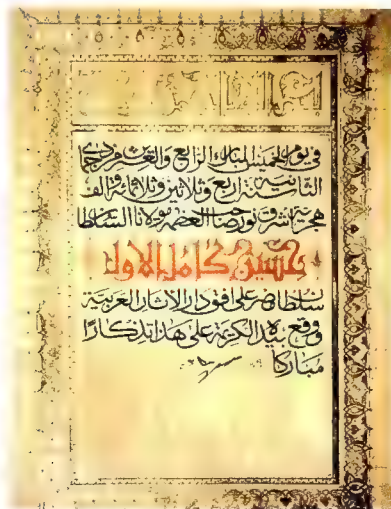 في يوم الخميس المبارك الرابع والعشرين من جمادى
الثانية سنة أربع وثلاثين وثلاثمائة وألف
هجرية أشرق نور صاحب العظمة مولانا السلطان
حسين كامل الأول
سلطان مصر على افق دار الآثار العربية
ووقع بيده الكريمة على هذا تذكارا
مباركا